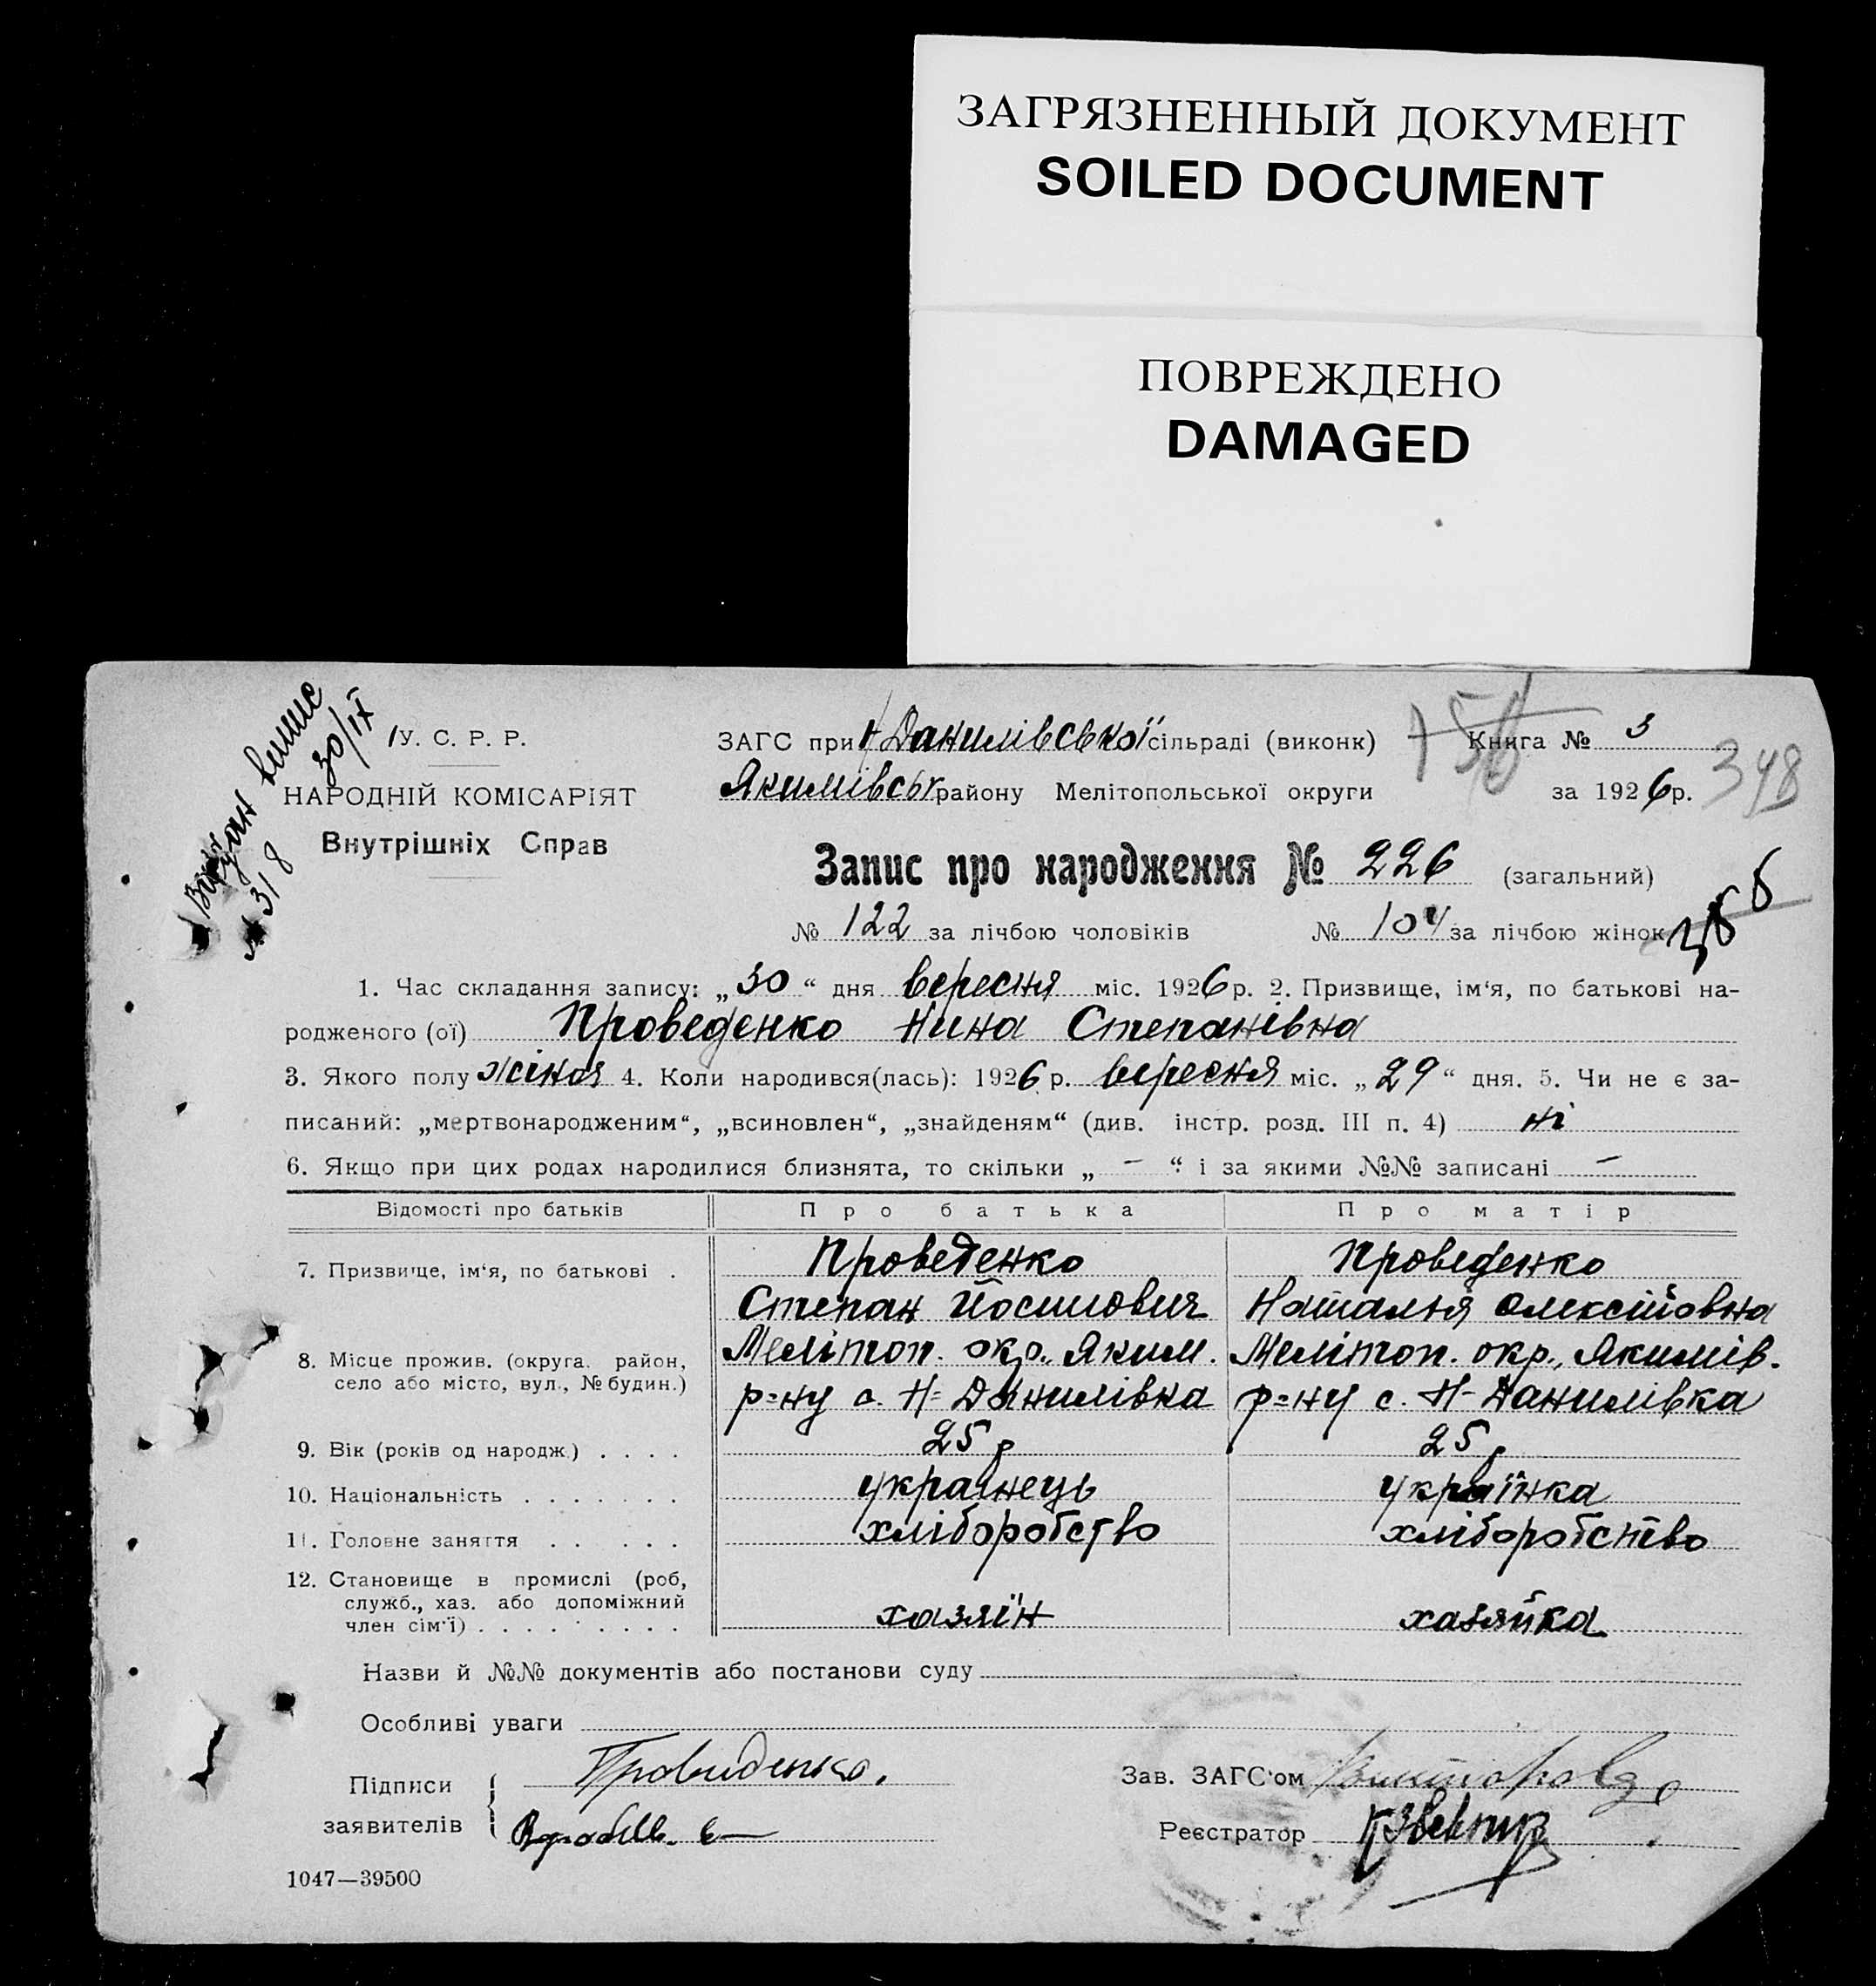 ЗАГРЯЗНЕННЫЙ ДОКУМЕНТ
SOILED DOCUMENT
ПОВРЕЖДЕНО
DAMAGED
Видан випис
30/IX
№ 318
У. С. Р. Р.
НАРОДНІЙ КОМІСАРІЯТ
Внутрішніх Справ
ЗАГС при Н Данилівської сільраді (виконк)
Якимівськ району Мелітопольської округи
Книга № 3
за 1926 р.
348
Запис про народження № 226 (загальний)
№ 122 за лічбою чоловіків № 104 за лічбою жінок
1. Час складання запису: „30“ дня вересня міс. 1926 р. 2. Призвище, ім‘я, по батькові на-
родженого (ої) Проведенко Нина Степанівна
3. Якого полу жіноч 4. Коли народився(лась): 1926 р. вересня міс. „29“ дня. 5. Чи не є за-
писаний: „мертвонародженим“, „всиновлен“, „знайденям“ (див. інстр. розд. III п. 4) ні
6. Якщо при цих родах народилися близнята, то скільки „ – “ і за якими №№ записані –
Відомості про батьків Про батька Про матір
7. Призвище, ім‘я, по батькові . Проведенко Проведенко
Степан Йосипович Наталья Олексійовна
8. Місце прожив. (округа, район, Мелітоп. окр., Яким. Мелітоп. окр., Якимів.
село або місто, вул., № будин.) р=ну с. Н=Данилівка р=ну с. Н-Данилівка
9. Вік (років од народж.) . . . . 25 р 25 р
10. Національність . . . . . . . українець українка
11. Головне заняття . . . . . . хліборобство хліборобство
12. Становище в промислі (роб,
служб., хаз. або допоміжний
член сім‘ї) . . . . . . . . . хазяїн хазяйка
Назви й №№ документів або постанови суду
Особливі уваги
Підписи
заявителів
Провиденко.
Зав. ЗАГС‘ом
Реєстратор
1047—39500